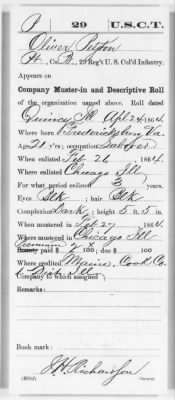 P | 29 | U.S.C.T.
Oliver Peyton
Pt., Co. B, 29 Reg't U. S. Col'd Infantry.
Appears on
Company Muster-in and Descriptive Roll
of the organization named above. Roll dated
Quincy Ill Apl 24, 1864.
Where born Fredericksburg Va.
Age 21 y'rs; occupation Laborer
When enlisted Feb 26, 1864.
Where enlisted Chicago Ill
For what period enlisted 3 years.
Eyes Blk ; hair Blk
Complexion Dark; height 5 ft. 5 in.
When mustered in Feb 27, 1864.
Where mustered in Chicago Ill
Bounty paid $ 100; due $ 100
Where credited Maine, Cook Co.
1 Dist Ill
Company to which assigned
Remarks:
Book mark:
J H Richardson